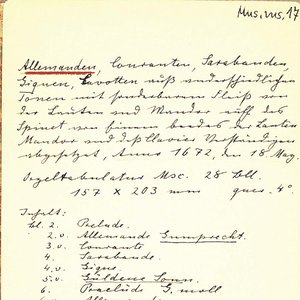 Mus. ms. 17
Allemanden, Couranten, Sarabanden,
Giquen, Gavotten auß underschidlichen
Tonen mit sonderbarem Fleiß von
der Lauten und Mandor auff das
Spinet von einem beeder der Lauten
Mandor und deß Clavier Verständigen
abgesetzt, Anno 1672, den 18 May.
Orgeltabulatur Msc. 28 bll.
157 X 203 mm quer. 4°.
Inhalt:
bl. 2. Prelude.
2.v. Allemande Gumprecht.
3.v. Couranto
4. Sarabande.
4.v. Gigue.
5.v. Güldene Sonn.
6. Praelude G. moll